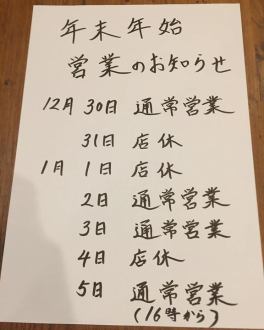 年末年始
営業のお知らせ
12月 30日 通常営業
31日 店休
1月 1日 店休
2日 通常営業
3日 通常営業
4日 店休
5日 通常営業
(16時から)